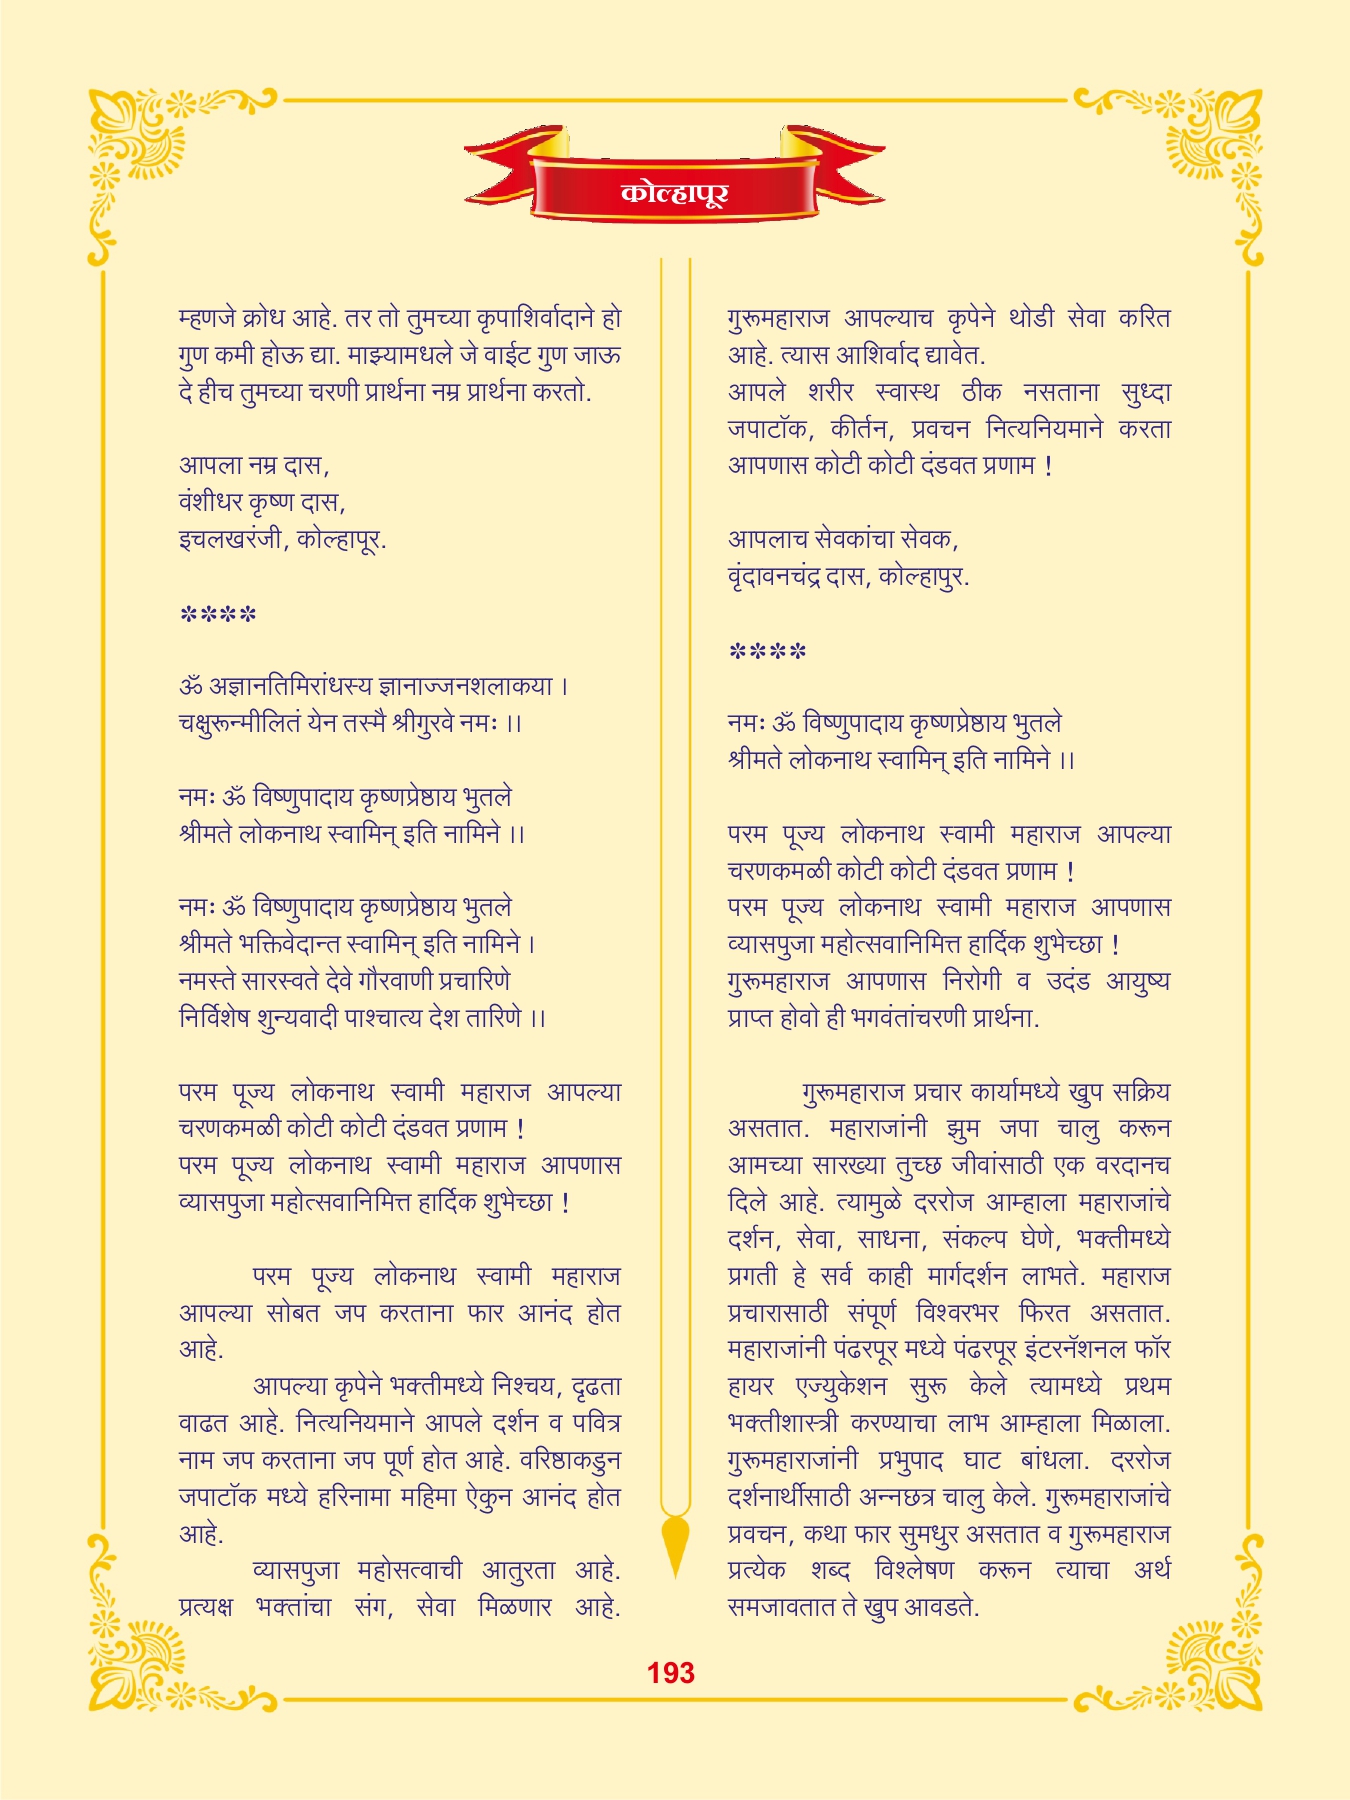 कोल्हापूर
म्हणजे क्रोध आहे. तर तो तुमच्या कृपाशिर्वादाने हो
गुण कमी होऊ द्या. माझ्यामधले जे वाईट गुण जाऊ
दे हीच तुमच्या चरणी प्रार्थना नम्र प्रार्थना करतो.
आपला नम्र दास,
वंशीधर कृष्ण दास,
इचलखरंजी, कोल्हापूर.
****
ॐ अज्ञानतिमिरांधस्य ज्ञानाज्जनशलाकया ।
चक्षुरून्मीलितं येन तस्मै श्रीगुरवे नमः ।।
नमः ॐ विष्णुपादाय कृष्णप्रेष्ठाय भुतले
श्रीमते लोकनाथ स्वामिन् इति नामिने ।।
नमः ॐ विष्णुपादाय कृष्णप्रेष्ठाय भुतले
श्रीमते भक्तिवेदान्त स्वामिन् इति नामिने ।
नमस्ते सारस्वते देवे गौरवाणी प्रचारिणे
निर्विशेष शुन्यवादी पाश्चात्य देश तारिणे ।।
परम पूज्य लोकनाथ स्वामी महाराज आपल्या
चरणकमळी कोटी कोटी दंडवत प्रणाम !
परम पूज्य लोकनाथ स्वामी महाराज आपणास
व्यासपुजा महोत्सवानिमित्त हार्दिक शुभेच्छा !
परम पूज्य लोकनाथ स्वामी महाराज
आपल्या सोबत जप करताना फार आनंद होत
आहे.
आपल्या कृपेने भक्तीमध्ये निश्चय, दृढता
वाढत आहे. नित्यनियमाने आपले दर्शन व पवित्र
नाम जप करताना जप पूर्ण होत आहे. वरिष्ठाकडुन
जपाटॉक मध्ये हरिनामा महिमा ऐकुन आनंद होत
आहे.
व्यासपुजा महोसत्वाची आतुरता आहे.
प्रत्यक्ष भक्तांचा संग, सेवा मिळणार आहे.
गुरूमहाराज आपल्याच कृपेने थोडी सेवा करित
आहे. त्यास आशिर्वाद द्यावेत.
आपले शरीर स्वास्थ ठीक नसताना सुध्दा
जपाटॉक, कीर्तन, प्रवचन नित्यनियमाने करता
आपणास कोटी कोटी दंडवत प्रणाम !
आपलाच सेवकांचा सेवक,
वृंदावनचंद्र दास, कोल्हापुर.
****
नमः ॐ विष्णुपादाय कृष्णप्रेष्ठाय भुतले
श्रीमते लोकनाथ स्वामिन् इति नामिने ।।
परम पूज्य लोकनाथ स्वामी महाराज आपल्या
चरणकमळी कोटी कोटी दंडवत प्रणाम !
परम पूज्य लोकनाथ स्वामी महाराज आपणास
व्यासपुजा महोत्सवानिमित्त हार्दिक शुभेच्छा !
गुरूमहाराज आपणास निरोगी व उदंड आयुष्य
प्राप्त होवो ही भगवंतांचरणी प्रार्थना.
गुरूमहाराज प्रचार कार्यामध्ये खुप सक्रिय
असतात. महाराजांनी झुम जपा चालु करून
आमच्या सारख्या तुच्छ जीवांसाठी एक वरदानच
दिले आहे. त्यामुळे दररोज आम्हाला महाराजांचे
दर्शन, सेवा, साधना, संकल्प घेणे, भक्तीमध्ये
प्रगती हे सर्व काही मार्गदर्शन लाभते. महाराज
प्रचारासाठी संपूर्ण विश्वरभर फिरत असतात.
महाराजांनी पंढरपूर मध्ये पंढरपूर इंटरनॅशनल फॉर
हायर एज्युकेशन सुरू केले त्यामध्ये प्रथम
भक्तीशास्त्री करण्याचा लाभ आम्हाला मिळाला.
गुरूमहाराजांनी प्रभुपाद घाट बांधला. दररोज
दर्शनार्थीसाठी अन्नछत्र चालु केले. गुरूमहाराजांचे
प्रवचन, कथा फार सुमधुर असतात व गुरूमहाराज
प्रत्येक शब्द विश्लेषण करून त्याचा अर्थ
समजावतात ते खुप आवडते.
193